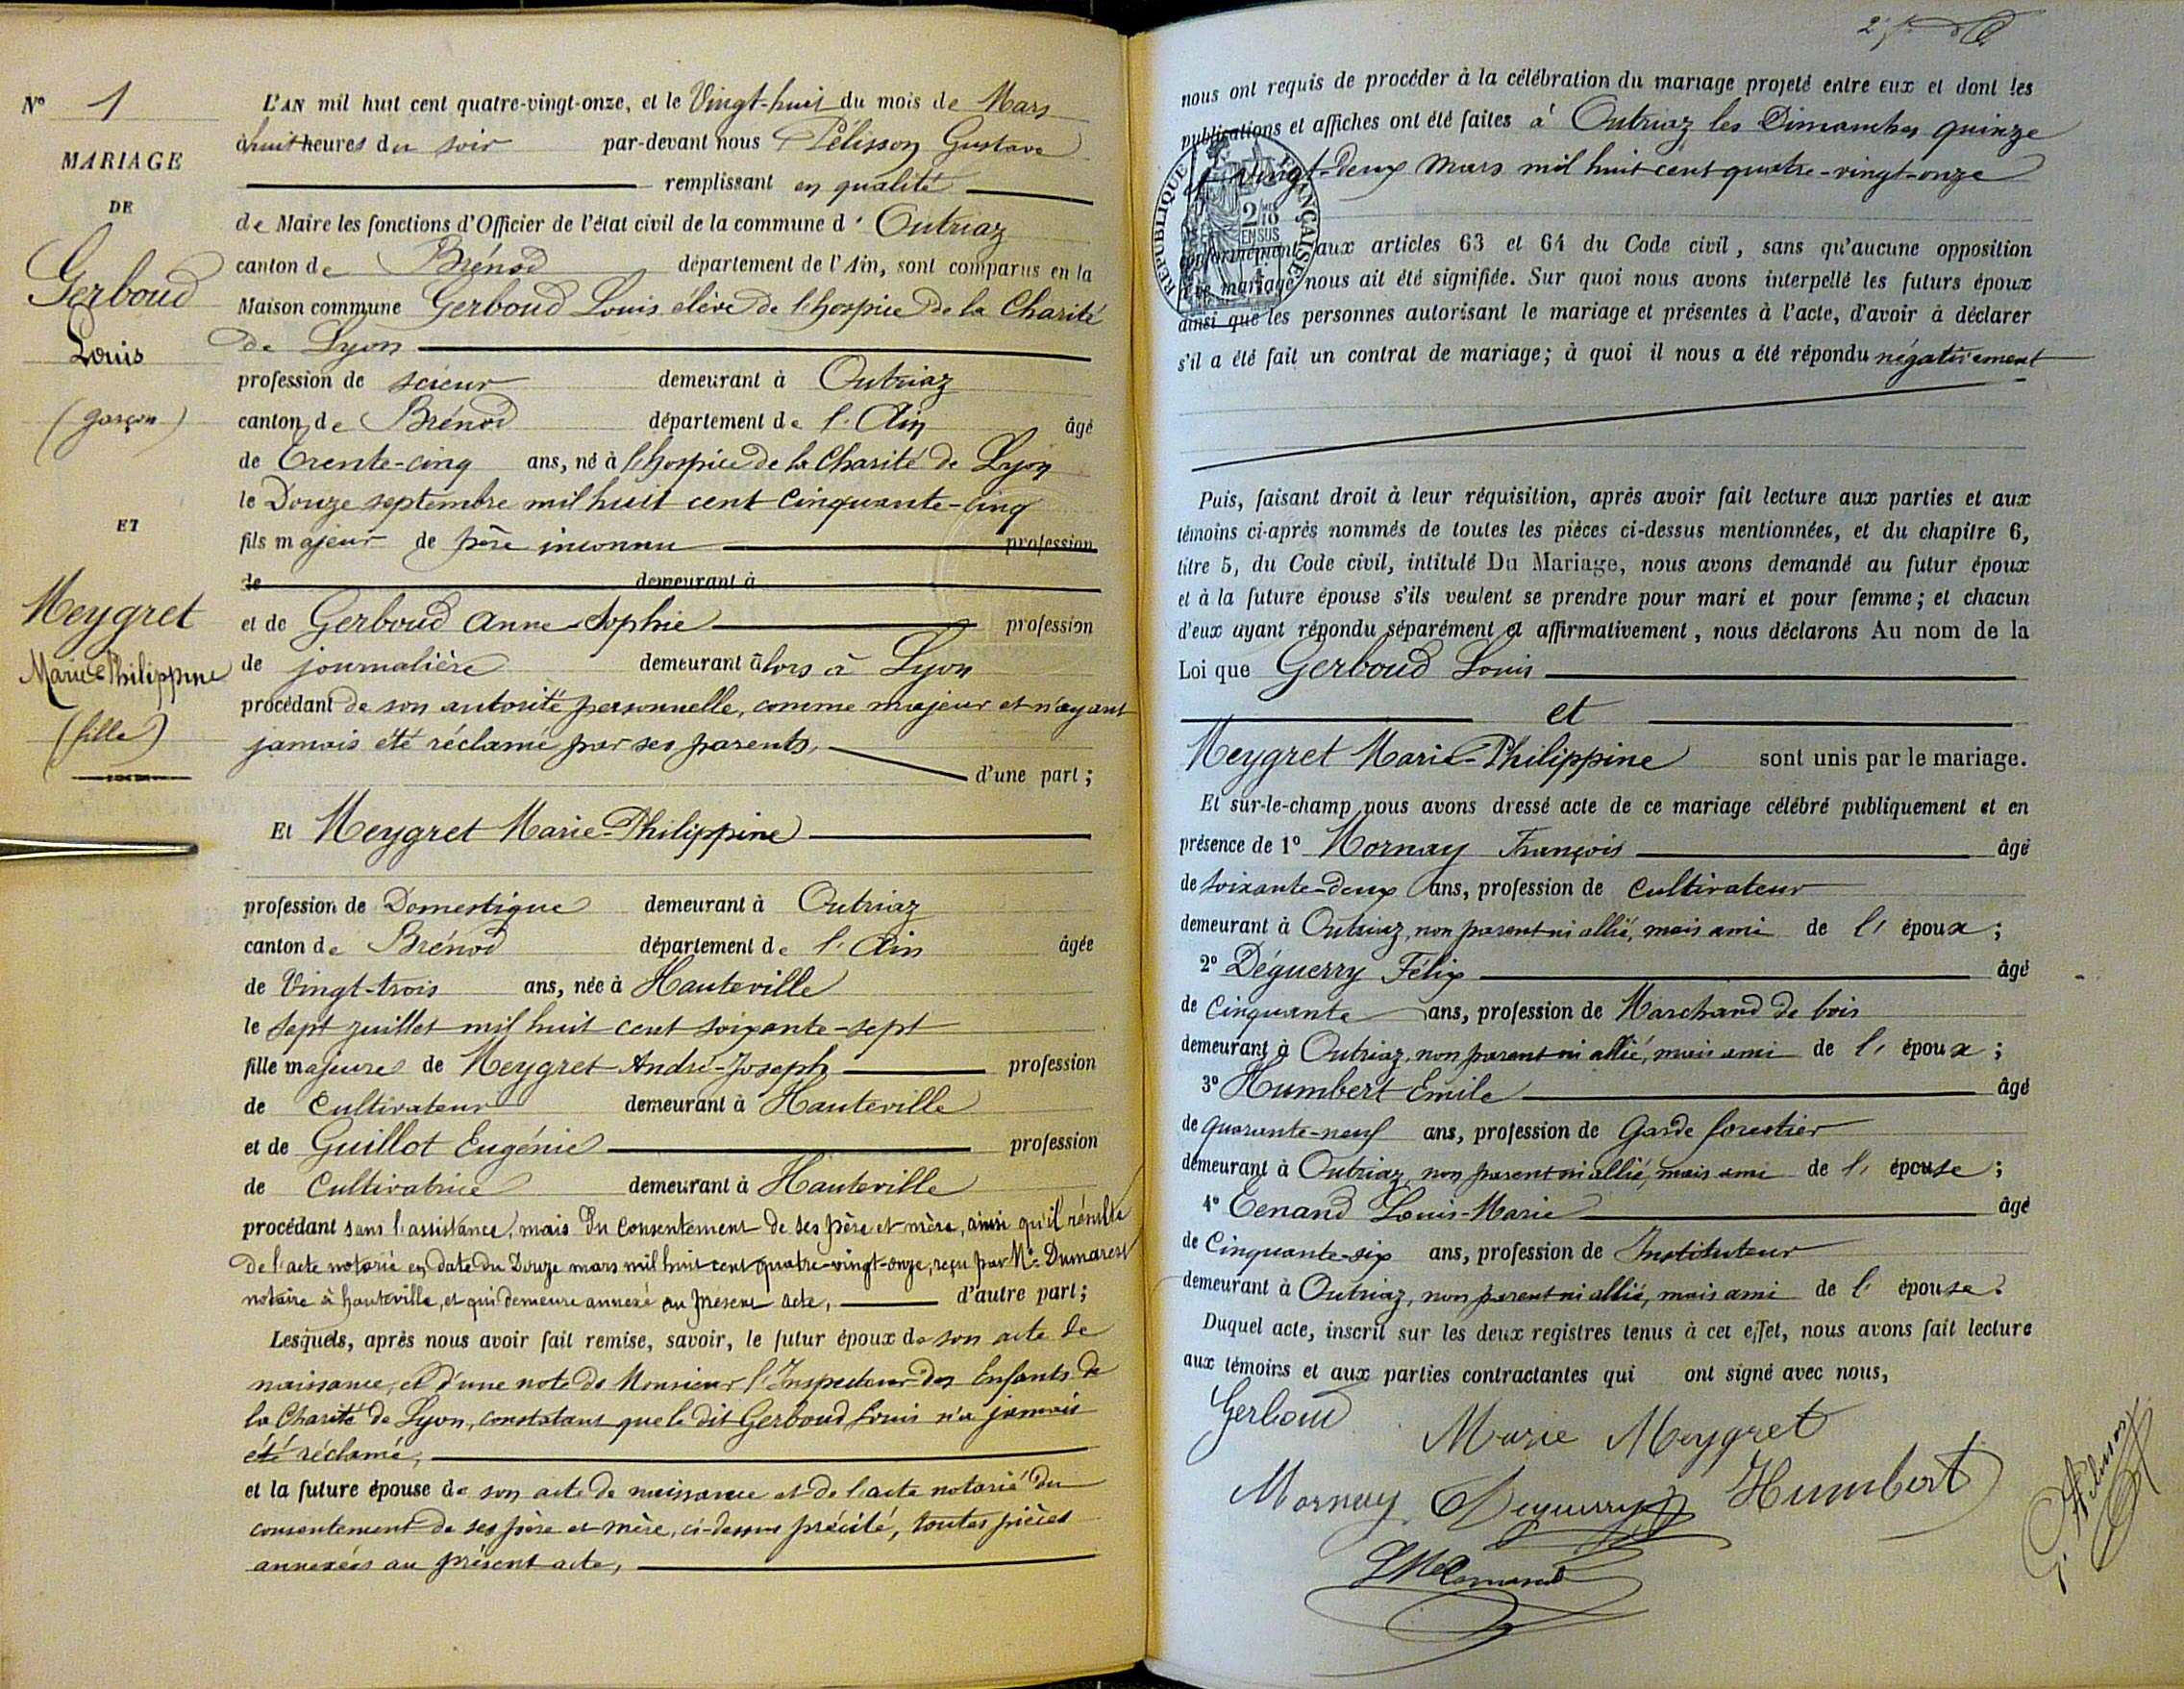 N° 1
MARIAGE
DE
Gerboud
Louis
(garçon)
ET
Meygret
Marie-Philippine
(fille)
L'AN mil huit cent quatre-vingt-onze, et le Vingt-huit du mois de Mars
à huit heures du soir par-devant nous Pélisson Gustave
remplissant en qualité
de Maire les fonctions d'Officier de l'état civil de la commune d' Outriaz
canton de Brénod département de l'Ain, sont comparus en la
Maison commune Gerboud Louis élève de l'hospice de la Charité
de Lyon
profession de scieur demeurant à Outriaz
canton de Brénod département de l'Ain âgé
de Trente-cinq ans, né à l'hospice de la Charité de Lyon
le Douze septembre mil huit cent cinquante-cinq
fils majeur de père inconnu profession
de demeurant à
et de Gerboud Anne-Sophie profession
de journalière demeurant alors à Lyon
procédant de son autorité personnelle, comme majeur et n'ayant
jamais été réclamé par ses parents,
d'une part;
Et Meygret Marie-Philippine
profession de Domestique demeurant à Outriaz
canton de Brénod département de l'Ain âgée
de Vingt-trois ans, née à Hauteville
le sept juillet mil huit cent soixante-sept
fille majeure de Meygret André-Joseph profession
de Cultivateur demeurant à Hauteville
et de Guillot Eugénie profession
de Cultivatrice demeurant à Hauteville
procédant sans l'assistance, mais du consentement de ses père et mère, ainsi qu'il résulte
de l'acte notarié en date du Douze mars mil huit cent quatre-vingt-onze, reçu par Me Dumarest
notaire à hauteville, et qui demeure annexé au présent acte, d'autre part;
Lesquels, après nous avoir fait remise, savoir, le futur époux de son acte de
naissance, et d'une note de Monsieur l'Inspecteur des Enfants de
la Charité de Lyon, constatant que le dit Gerboud Louis n'a jamais
été réclamé,
et la future épouse de son acte de naissance et de l'acte notarié du
consentement de ses père et mère, ci-dessus précité, toutes pièces
annexées au présent acte,
nous ont requis de procéder à la célébration du mariage projeté entre eux et dont les
publications et affiches ont été faites à Outriaz les Dimanches quinze
et vingt-deux Mars mil huit cent quatre-vingt-onze
RÉPUBLIQUE FRANÇAISE
2/10 EN SUS
conformément aux articles 63 et 64 du Code civil, sans qu'aucune opposition
mariage nous ait été signifiée. Sur quoi nous avons interpellé les futurs époux
ainsi que les personnes autorisant le mariage et présentes à l'acte, d'avoir à déclarer
s'il a été fait un contrat de mariage; à quoi il nous a été répondu négativement
Puis, faisant droit à leur réquisition, après avoir fait lecture aux parties et aux
témoins ci-après nommés de toutes les pièces ci-dessus mentionnées, et du chapitre 6,
titre 5, du Code civil, intitulé Du Mariage, nous avons demandé au futur époux
et à la future épouse s'ils veulent se prendre pour mari et pour femme; et chacun
d'eux ayant répondu séparément et affirmativement, nous déclarons Au nom de la
Loi que Gerboud Louis
et
Meygret Marie-Philippine sont unis par le mariage.
Et sur-le-champ nous avons dressé acte de ce mariage célébré publiquement et en
présence de 1° Mornay François âgé
de soixante-deux ans, profession de Cultivateur
demeurant à Outriaz, non parent ni allié, mais ami de l' époux;
2° Déguerry Félix âgé
de Cinquante ans, profession de Marchand de bois
demeurant à Outriaz, non parent ni allié, mais ami de l' époux;
3° Humbert Emile âgé
de quarante-neuf ans, profession de Garde forestier
demeurant à Outriaz, non parent ni allié, mais ami de l' épouse;
4° Tenand Louis-Marie âgé
de Cinquante-six ans, profession de Instituteur
demeurant à Outriaz, non parent ni allié, mais ami de l' épouse.
Duquel acte, inscrit sur les deux registres tenus à cet effet, nous avons fait lecture
aux témoins et aux parties contractantes qui ont signé avec nous,
Gerboud
Marie Meygret
Mornay Deguerry Humbert
G. Pélisson